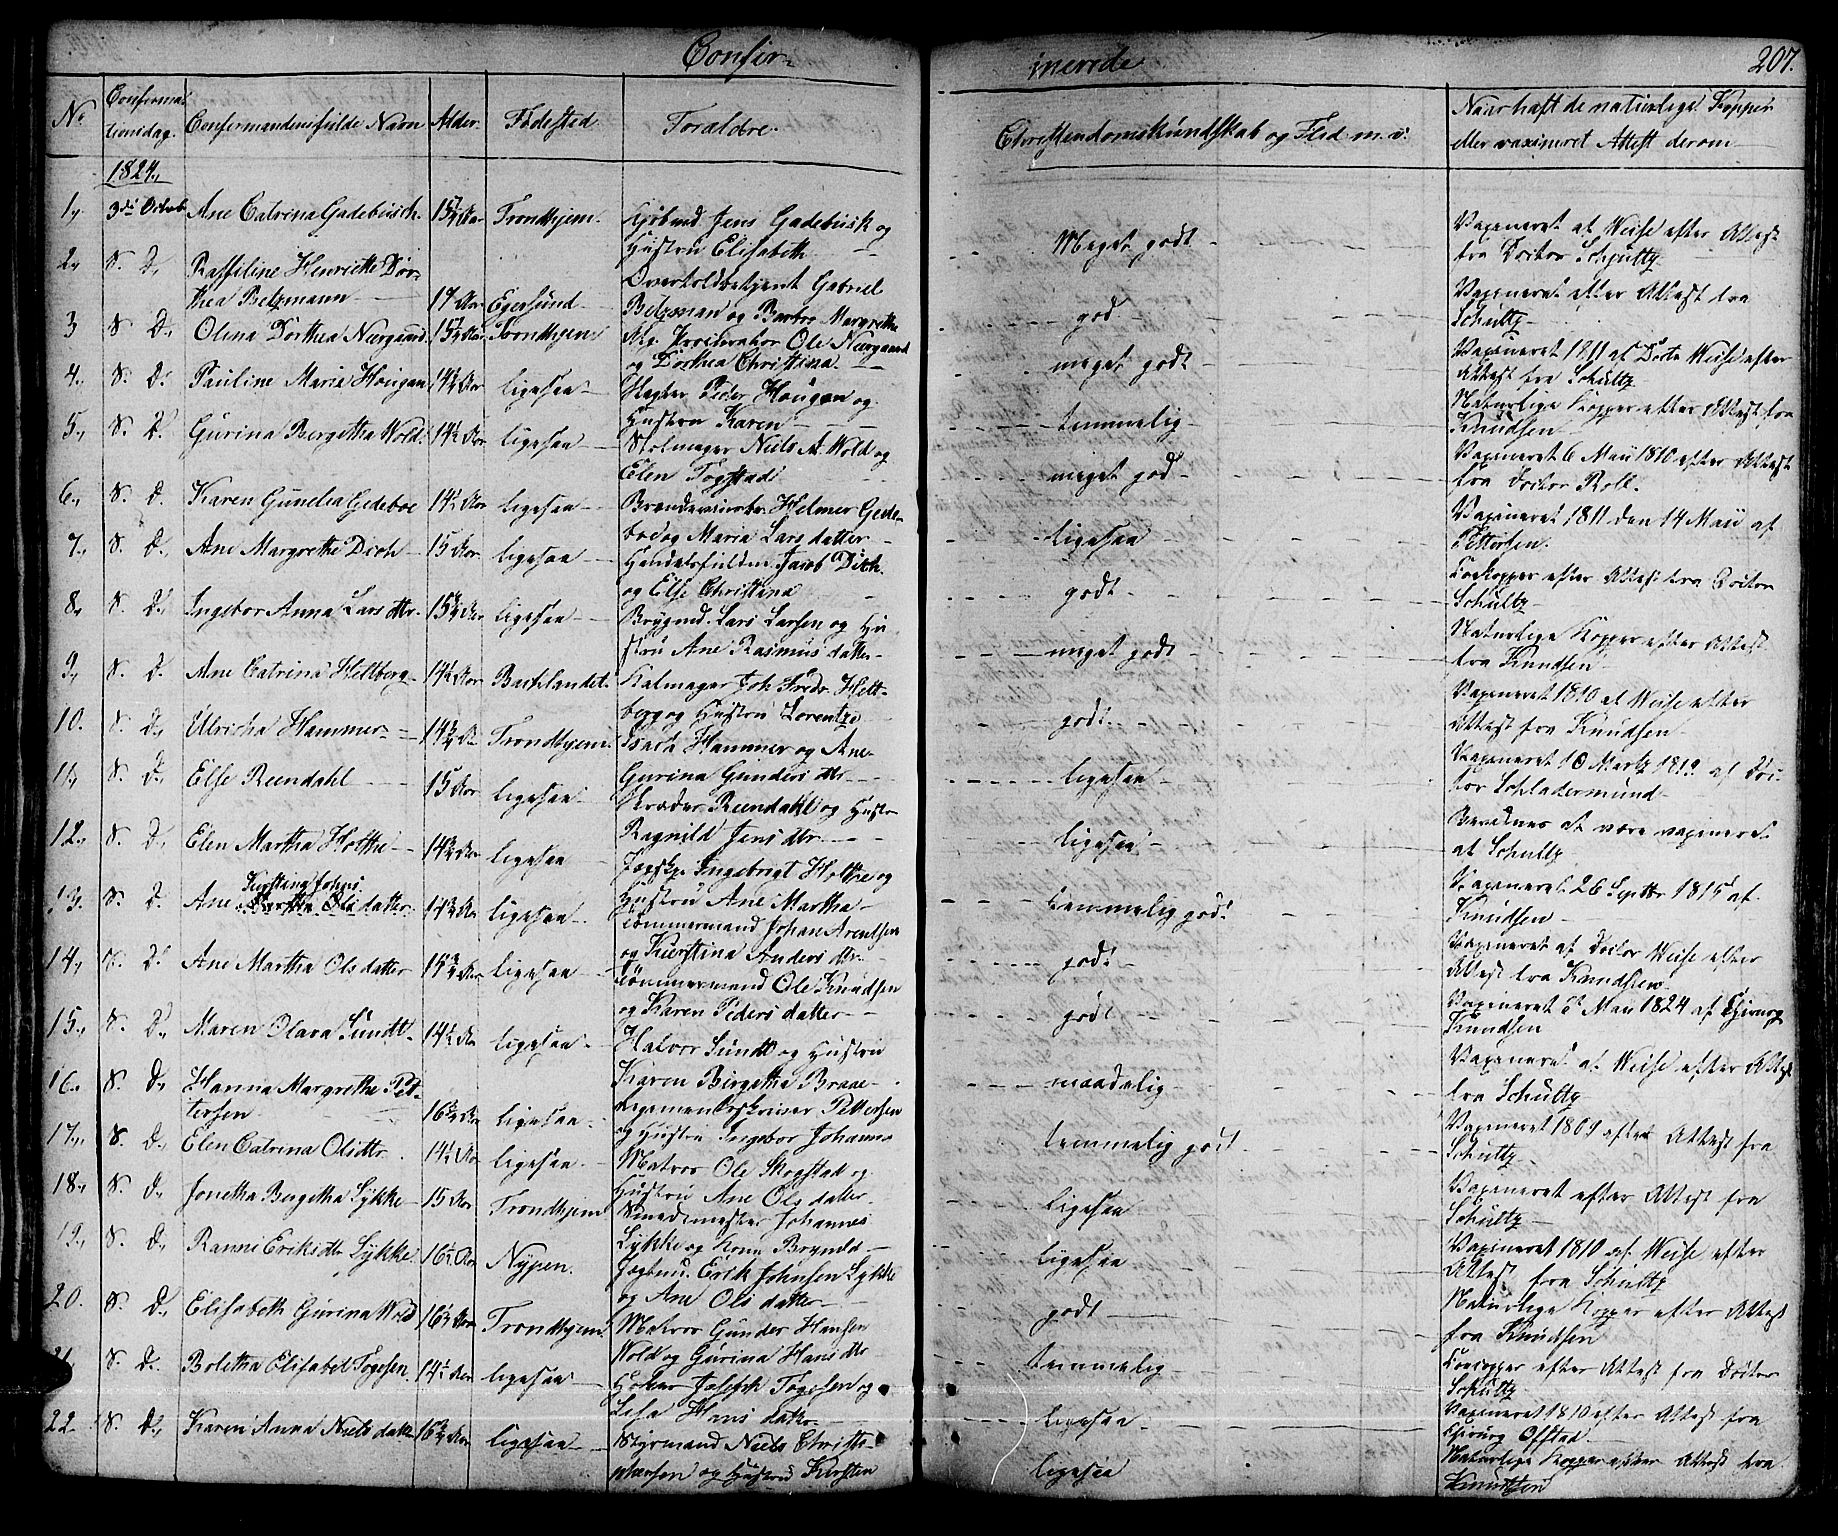 Confir=
merede
207.
No
Confirma=
tionsdag.
Confirmandens fulde Navn
Alder
Fødested
Foraldre.
Christendomskundskab og Flid m. v:
Naar haft de naturlige Kopper
eller vaxineret Attest derom
1824.,
1,. 3die Octob. Ane Catrina Gadebusch. 15 Aar Trondhjem. Jens Gadebusk og
Hustru Elisabeth
Meget godt
Vaxineret af Weise efter Attest
fra Doctor Schultz
2., S. D., Raffeline Henriette Dor=
thea Betzmann 17 Aar Egersund
Overtoldbetjent Gabriel
Betzman og Barbro Margrethe
god
Vaxineret efter Attest fra
Schultz
3 S. D., Olina Dorthea Nærgaard 15 Aar Trondhjem
Procurator Ole Nærgaard
og Dorthea Christina.
meget godt
Vaxineret 1811 af Weise efter
Attest fra Schultz
4., S. D. Pauline Maria Hougan 14 Aar ligesaa
Peder Hougan og
Hustru Karen
temmelig
Naturlige Kopper efter Attest fra
Knudsen
5., S. D. Gurina Bergetha Wold. 14½ Aar ligesaa
Stolmager Niels A. Wold og
Elen Fogstad
meget god
Vaxineret 6 Maii 1810 efter Attest
fra Doctor Roll.
6., S. D. Karen Gunelia Gedeboe 14½ Aar ligesaa
Helmer Gede=
boe og Maria Larsdatter
ligesaa
Vaxineret 1811 den 14 Maii af
Pettersen.
7., S. D., Ane Margrethe Dich 15 Aar ligesaa
Jacob Dich
og Else Christina
godt
Koekopper efter Attest fra Doctor
Schultz
8., S. D., Ingebor Anna Larsdtr. 15¾ Aar ligesaa
Brygmd. Lars Larsen og Hu=
stru Ane Rasmusdatter
meget godt
Naturlige Kopper efter Attest
fra Knudsen
9., S. D. Ane Catrina Heltberg 14¼ Aar Baklandet.
Joh. Fredr. Helt=
berg og Hustru Lorentze
godt.
Vaxineret 1810 af Weise efter
Attest fra Knudsen
10. S. D., Ulricha Hammer 14¾ Ar Trondhjem.
Isach Hammer og Ane
Gurina Gundersdtr
ligesaa
Vaxineret 10 Martz 1819 af Doc=
tor Schladermund
11., S. D., Else Rendahl 15 Aar ligesaa
Skræder Rendahl og Hustru
Ragnild Jensdtr.
ligesaa
Bevidnes at være vaxineret
af Schultz
12., S. D., Elen Martha Holthe 14¾ Aar ligesaa
Ingebrigt Holthe og
Hustru Ane Martha
temmelig godt
Vaxineret 26 Septbr 1815 af
Knudsen
13. S. D. Ane Kirstina Johans datter 14¾ Aar ligesaa
Tømmermand Johan Arentsen
og Kirstina Andersdtr.
godt
Vaxineret af Doctor Weise efter
Attest fra Knudsen
14., S. D. Ane Martha Olsdatter 15¾ Ar ligesaa
Tømmermand Ole Knudsen
og Karen Pedersdatter
godt
Vaxineret 5 Maii 1824 af Chirurg
Knudsen
15., S. D., Maren Olava Sundt 14½ Ar ligesaa
Halvor Sundt og Hustru
Karen Birgetha Braae
maadelig
Vaxineret af Weise efter Attest
fra Schultz
16., S. D., Hanna Margretha Pet=
tersen 16¾ Ar ligesaa
Pettersen
og Hustru Ingebor Johanne
temmelig godt
Vaxineret 1809 efter Attest fra
Schultz
17., S. D., Elen Catrina Olsdtr. 14½ Ar ligesaa
Matros Ole Skogstad og
Hustru Ane Olsdatter
ligesaa
Vaxineret efter Attest fra
Schultz
18., S. D., Jonetha Bergetha Lykke 15 Aar Trondhjem
Smedemester Johannes
Lykke og Kone Brynild
ligesaa
Vaxineret 1810 af Weise efter
Attest fra Schultz
19., S. D., Ranni Eriksdtr Lykke. 16½ Aar Nypen.
Erik Johnsen Lykke
og Ane Olsdatter
godt
Naturlige Kopper efter Attest
fra Knudsen
20. S. D., Elisabeth Gurina Wold 16½ Aar Trondhjem.
Matros Gunder Hansen
Wold og Gurina Hansdtr
temmelig
Koekopper efter Attest fra Docter
Schultz
21. S. D. Boletha Elisabet Fogesen 14½ Aar ligesaa
Høker Joseph Fogesen og
Lisa Hansdatter
ligesaa
Vaxineret 1810 efter Attest fra
Chirurg Ofstad
22. S. D., Karen Anna Nielsdatter 16¾ Aar ligesaa
Styrmand Niels Christo=
phersen og Hustru Kirsten
ligesaa
Naturlige Kopper efter Attest fra
Knudtsen